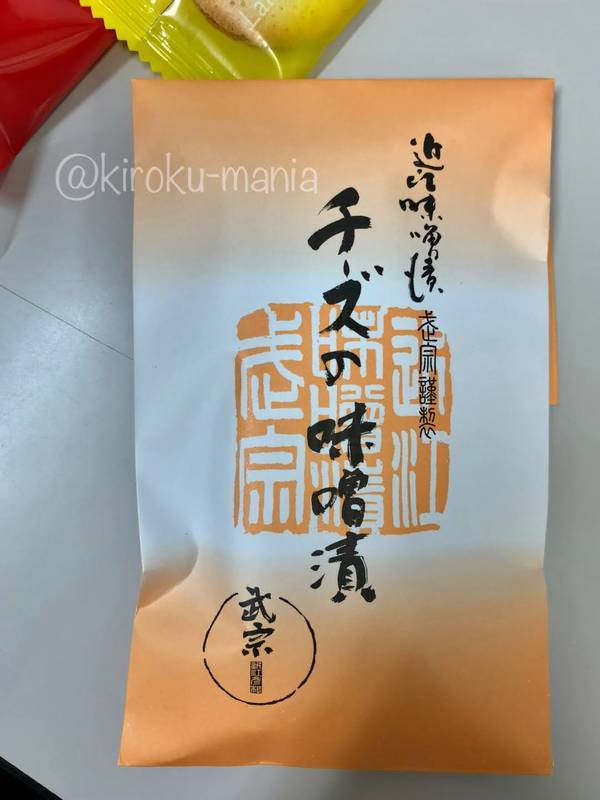 @kiroku-mania
近江味噌漬
武宗謹製
チーズの味噌漬
近江
味噌漬
武宗
武宗